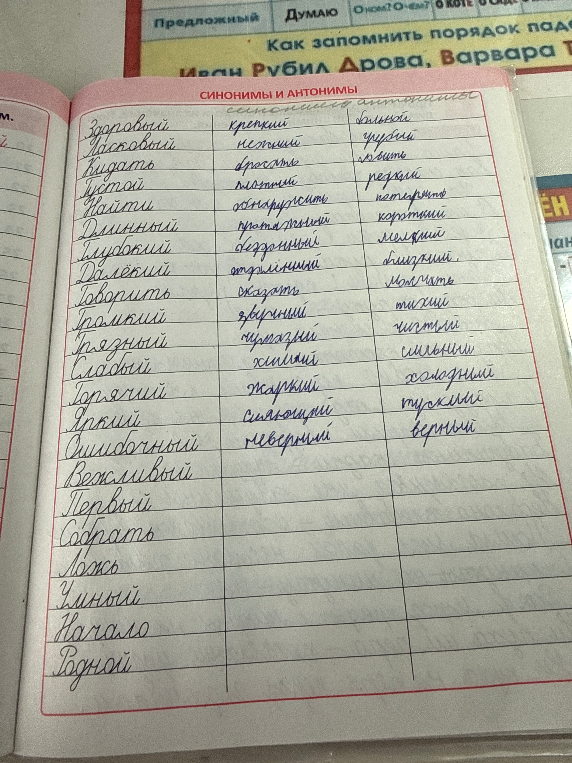 Предложный Думаю О ком? О чём?
Как запомнить порядок
Иван Рубил Дрова, Варвара
СИНОНИМЫ И АНТОНИМЫ
синонимы антонимы
Здоровый крепкий больной
Ласковый нежный грубый
Кидать бросать ловить
Густой плотный редкий
Найти обнаружить потерять
Длинный протяжный короткий
Глубокий бездонный мелкий
Далёкий отдалённый близкий.
Говорить сказать молчать
Громкий звучный тихий
Грязный чумазый чистый
Слабый хилый сильный
Горячий жаркий холодный
Яркий сияющий тусклый
Ошибочный неверный верный
Вежливый
Первый
Собрать
Ложь
Умный
Начало
Родной